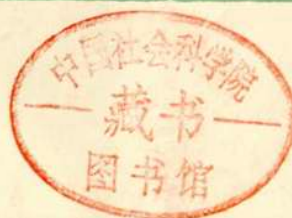 中国社会科学院
藏书
图书馆